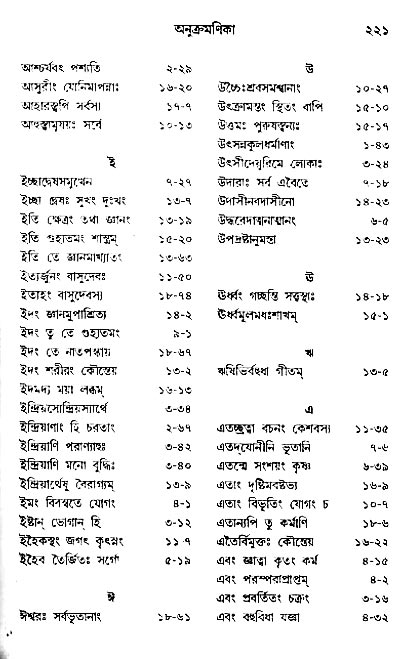 অনুক্রমণিকা ২২১
আশ্চর্যবৎ পশ্যতি ২-২৯
আসুরীং যোনিমাপন্নাঃ ১৬-২০
আহারস্ত্বপি সর্বস্য ১৭-৭
আহুস্ত্বামৃষয়ঃ সর্বে ১০-১৩
ই
ইচ্ছাদ্বেষসমুত্থেন ৭-২৭
ইচ্ছা দ্বেষঃ সুখং দুঃখং ১৩-৭
ইতি ক্ষেত্রং তথা জ্ঞানং ১৩-১৯
ইতি গুহ্যতমং শাস্ত্রম্ ১৫-২০
ইতি তে জ্ঞানমাখ্যাতং ১৮-৬৩
ইত্যর্জুনং বাসুদেবঃ ১১-৫০
ইত্যহং বাসুদেবস্য ১৮-৭৪
ইদং জ্ঞানমুপাশ্রিত্য ১৪-২
ইদং তু তে গুহ্যতমং ৯-১
ইদং তে নাতপস্কায় ১৮-৬৭
ইদং শরীরং কৌন্তেয় ১৩-২
ইদমদ্য ময়া লব্ধম্ ১৬-১৩
ইন্দ্রিয়স্যেন্দ্রিয়স্যার্থে ৩-৩৪
ইন্দ্রিয়াণাং হি চরতাং ২-৬৭
ইন্দ্রিয়াণি পরাণ্যাহুঃ ৩-৪২
ইন্দ্রিয়াণি মনো বুদ্ধিঃ ৩-৪০
ইন্দ্রিয়ার্থেষু বৈরাগ্যম্ ১৩-৯
ইমং বিবস্বতে যোগং ৪-১
ইষ্টান্ ভোগান্ হি ৩-১২
ইহৈকস্থং জগৎ কৃৎস্নং ১১-৭
ইহৈব তৈর্জিতঃ সর্গো ৫-১৯
ঈ
ঈশ্বরঃ সর্বভূতানাং ১৮-৬১
উ
উচ্চৈঃশ্রবসমশ্বানাং ১০-২৭
উৎক্রামন্তং স্থিতং বাপি ১৫-১০
উত্তমঃ পুরুষস্ত্বন্যঃ ১৫-১৭
উৎসন্নকুলধর্মাণাং ১-৪৩
উৎসীদেয়ুরিমে লোকাঃ ৩-২৪
উদারাঃ সর্ব এবৈতে ৭-১৮
উদাসীনবদাসীনো ১৪-২৩
উদ্ধরেদাত্মনাত্মানং ৬-৫
উপদ্রষ্টানুমন্তা ১৩-২৩
ঊ
ঊর্ধ্বং গচ্ছন্তি সত্ত্বস্থাঃ ১৪-১৮
ঊর্ধ্বমূলমধঃশাখম্ ১৫-১
ঋ
ঋষিভির্বহুধা গীতম্ ১৩-৫
এ
এতচ্ছ্রুত্বা বচনং কেশবস্য ১১-৩৫
এতদ্‌যোনীনি ভূতানি ৭-৬
এতন্মে সংশয়ং কৃষ্ণ ৬-৩৯
এতাং দৃষ্টিমবষ্টভ্য ১৬-৯
এতাং বিভূতিং যোগং চ ১০-৭
এতান্যপি তু কর্মাণি ১৮-৬
এতৈর্বিমুক্তঃ কৌন্তেয় ১৬-২২
এবং জ্ঞাত্বা কৃতং কর্ম ৪-১৫
এবং পরম্পরাপ্রাপ্তম্ ৪-২
এবং প্রবর্তিতং চক্রং ৩-১৬
এবং বহুবিধা যজ্ঞা ৪-৩২